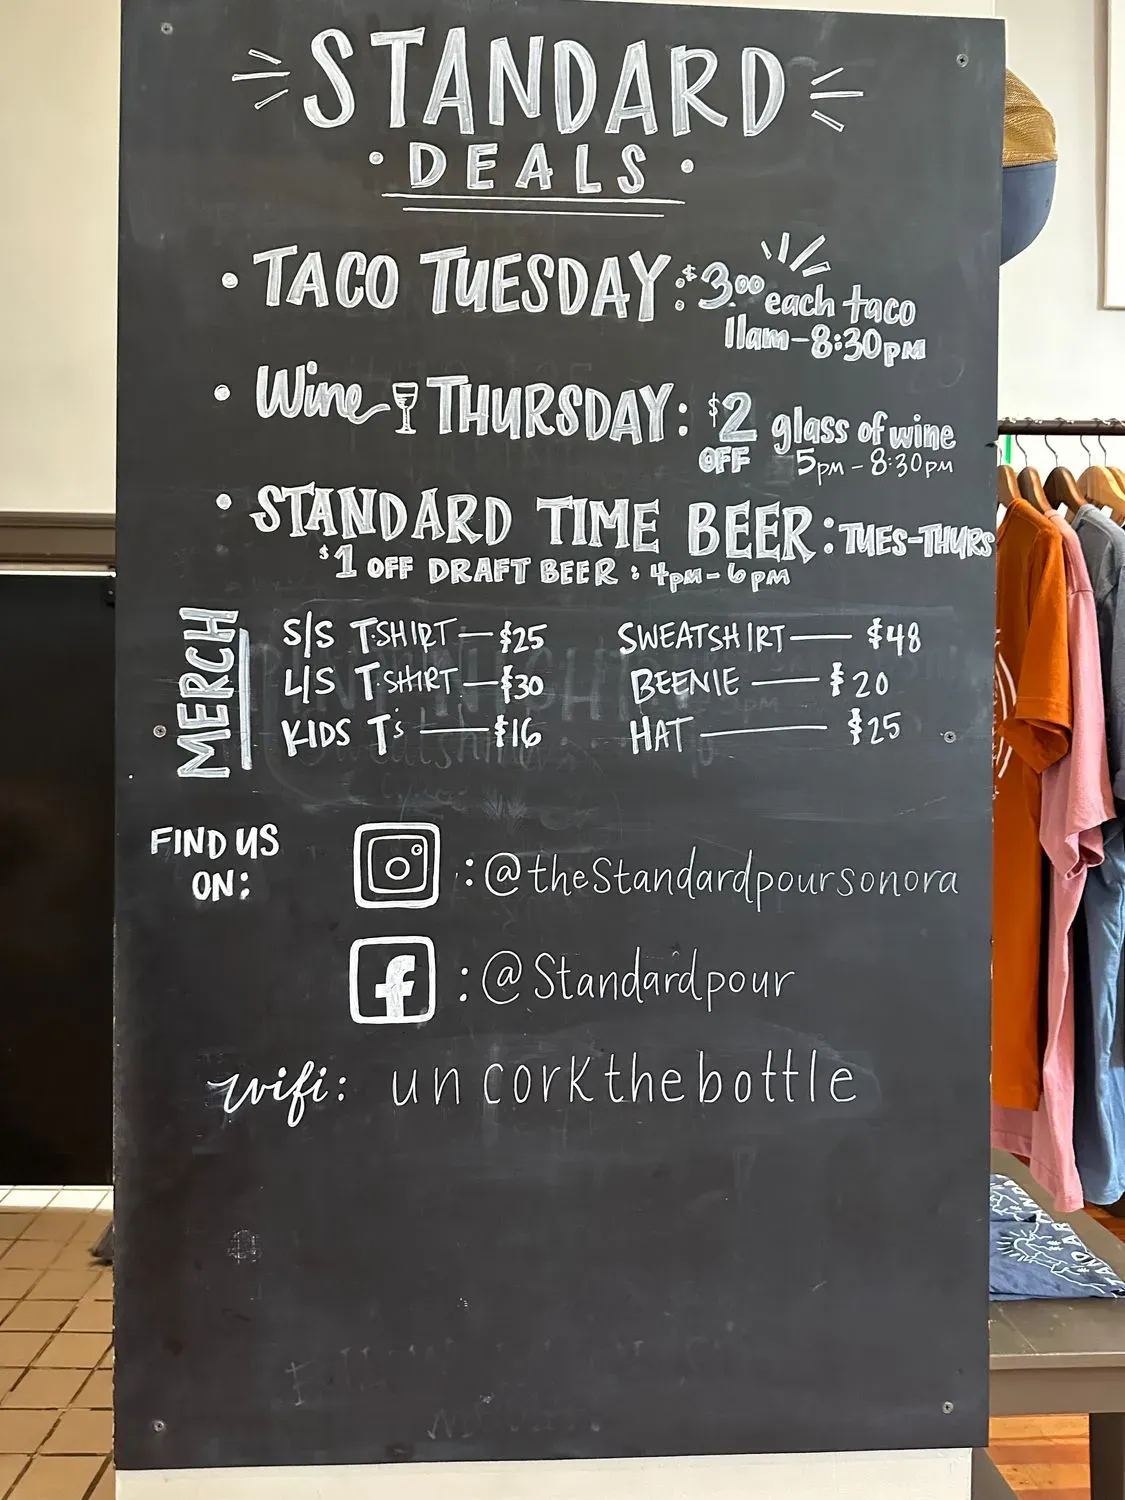 STANDARD
• DEALS •
• TACO TUESDAY: $3.00 each taco
11am-8:30pm
• Wine THURSDAY: $2 OFF glass of wine
5pm - 8:30pm
• STANDARD TIME BEER: TUES-THURS
$1 OFF DRAFT BEER: 4pm-6pm
MERCH
S/S T-SHIRT — $25 SWEATSHIRT — $48
L/S T-SHIRT — $30 BEENIE — $20
KIDS T's — $16 HAT — $25
FIND US
ON:
: @theStandardpoursonora
: @Standardpour
wifi: uncorkthebottle